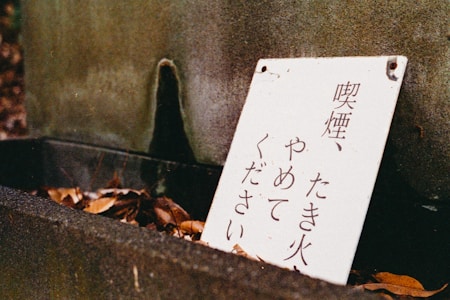 喫煙、
たき火
やめて
ください